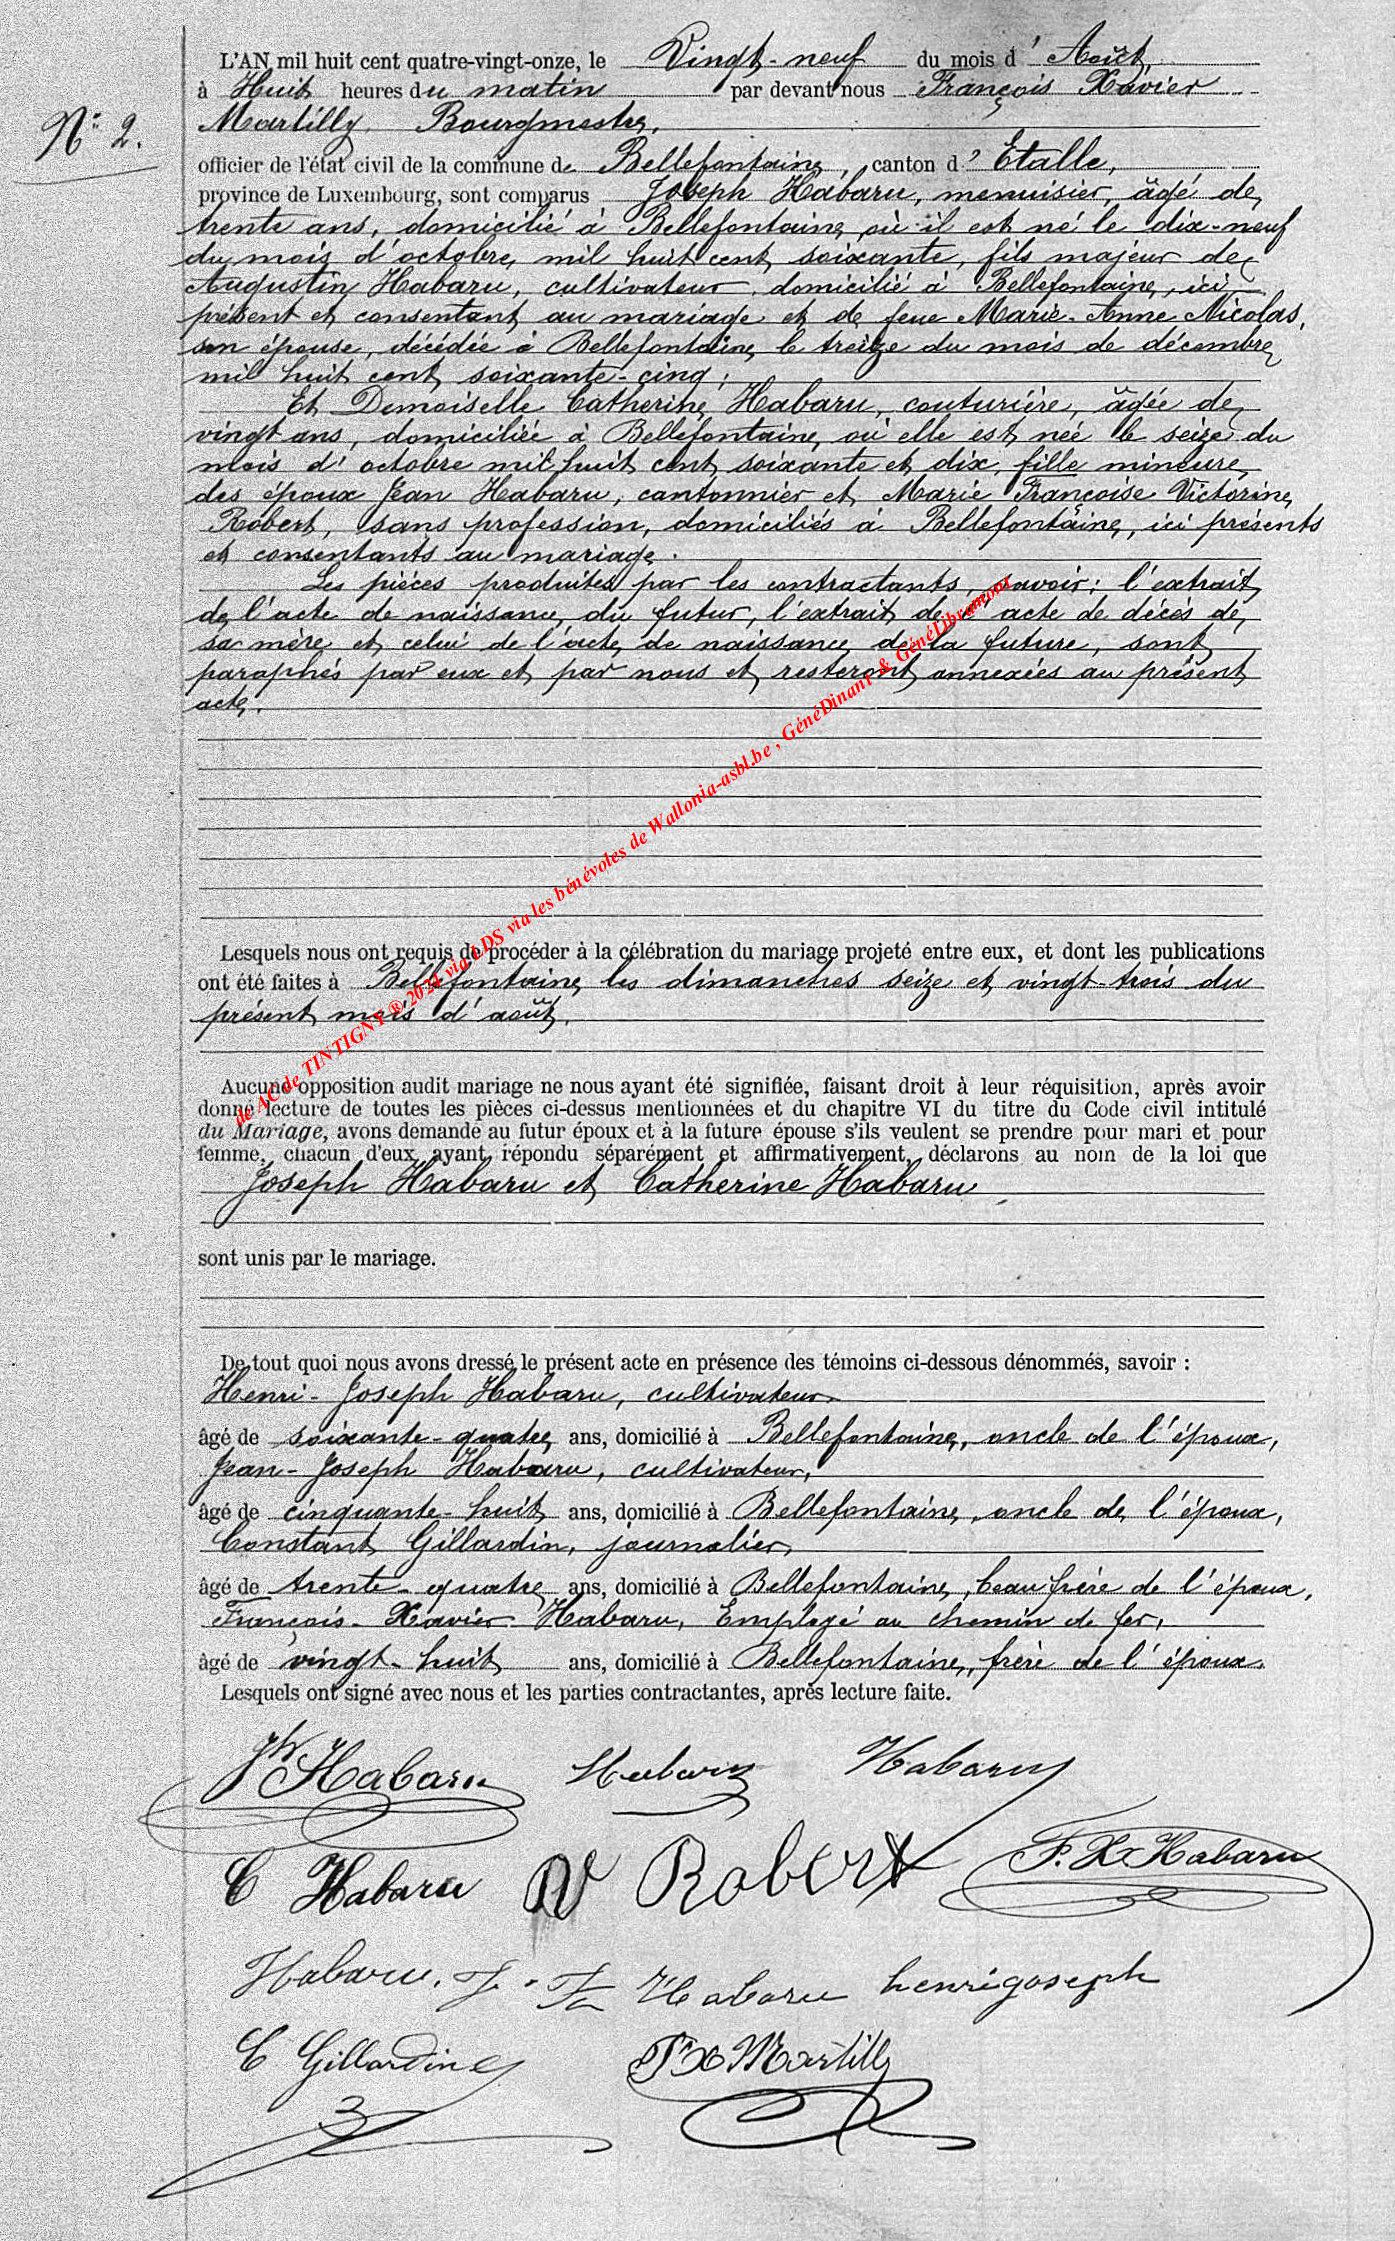 N° 2.
L'AN mil huit cent quatre-vingt-onze, le Vingt-neuf du mois d'Août,
à Huit heures du matin par devant nous François Xavier
Martilly, Bourgmestre,
officier de l'état civil de la commune de Bellefontaine, canton d'Etalle,
province de Luxembourg, sont comparus Joseph Habaru, menuisier, âgé de
trente ans, domicilié à Bellefontaine où il est né le dix-neuf
du mois d'octobre mil huit cent soixante, fils majeur de
Augustin Habaru, cultivateur, domicilié à Bellefontaine, ici
présent et consentant au mariage et de feue Marie-Anne Nicolas,
son épouse, décédée à Bellefontaine le treize du mois de décembre
mil huit cent soixante-cinq;
Et Demoiselle Catherine Habaru, couturière, âgée de
vingt ans, domiciliée à Bellefontaine, où elle est née le seize du
mois d'octobre mil huit cent soixante et dix, fille mineure
des époux Jean Habaru, cantonnier et Marie Françoise Victorine
Robert, sans profession, domiciliés à Bellefontaine, ici présents
et consentants au mariage.
Les pièces produites par les contractants, savoir: l'extrait
de l'acte de naissance du futur, l'extrait de l'acte de décès de
sa mère et celui de l'acte de naissance de la future, sont
paraphés par eux et par nous et resteront annexées au présent
acte.
de AC de TINTIGNY ® 2024 via LDS via les bénévoles de Wallonia-asbl.be , GénéDinant & GénéLibramont
Lesquels nous ont requis de procéder à la célébration du mariage projeté entre eux, et dont les publications
ont été faites à Bellefontaine les dimanches seize et vingt-trois du
présent mois d'août.
Aucune opposition audit mariage ne nous ayant été signifiée, faisant droit à leur réquisition, après avoir
donné lecture de toutes les pièces ci-dessus mentionnées et du chapitre VI du titre du Code civil intitulé
du Mariage, avons demandé au futur époux et à la future épouse s'ils veulent se prendre pour mari et pour
femme, chacun d'eux ayant répondu séparément et affirmativement, déclarons au nom de la loi que
Joseph Habaru et Catherine Habaru
sont unis par le mariage.
De tout quoi nous avons dressé le présent acte en présence des témoins ci-dessous dénommés, savoir :
Henri-Joseph Habaru, cultivateur,
âgé de soixante-quatre ans, domicilié à Bellefontaine, oncle de l'époux,
Jean-Joseph Habaru, cultivateur,
âgé de cinquante-huit ans, domicilié à Bellefontaine, oncle de l'époux,
Constant Gillardin, journalier,
âgé de trente-quatre ans, domicilié à Bellefontaine, beau frère de l'époux,
François-Xavier Habaru, Employé au chemin de fer,
âgé de vingt-huit ans, domicilié à Bellefontaine, frère de l'époux.
Lesquels ont signé avec nous et les parties contractantes, après lecture faite.
Jh Habaru Habaru Habaru
C Habaru V Robert F. X Habaru
Habaru. J. Habaru henrijoseph
C Gillardin FX Martilly